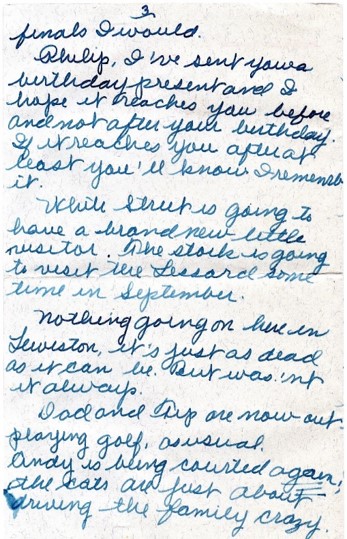 3
finals I would.
Philip, I've sent you a
birthday present and I
hope it reaches you before
and not after your birthday.
If it reaches you after at
least you'll know I rememb
it.
White Street is going to
have a brand new little
visitor. The stork is going
to visit the Lessard some
time in September.
Nothing going on here in
Lewiston, it's just as dead
as it can be. But was'nt
it always.
Dad and Tip are now out
playing golf, as usual.
Andy is being courted again,
the cats are just about
driving the family crazy.